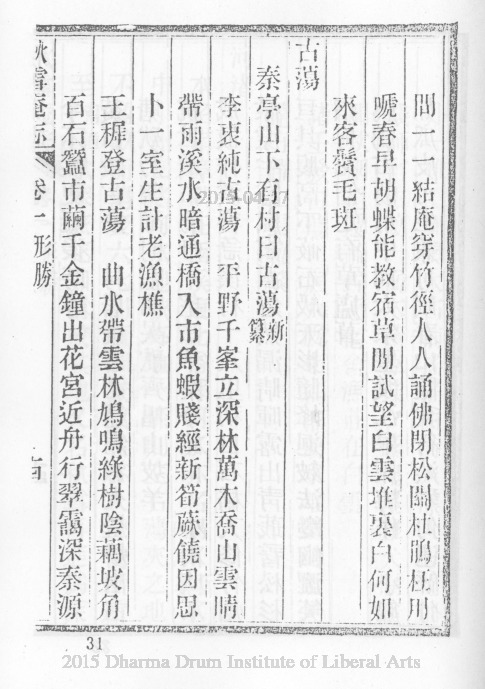 間一一結庵穿竹徑人人誦佛閉松關杜鵑枉用
嗁春早胡蝶能教宿草閒試望白雲堆裏白何如
來客鬢毛斑
古蕩
秦亭山下有村曰古蕩新纂
李衷純古蕩 平野千峯立深林萬木喬山雲晴
帶雨溪水暗通橋入市魚蝦賤經新筍蕨饒因思
卜一室生計老漁樵
王穉登古蕩 曲水帶雲林鳩鳴綠樹陰藕坡角
百石蠶市繭千金鐘出花宮近舟行翠靄深秦源
秋雪庵志 卷一 形勝
31
2015 Dharma Drum Institute of Liberal Arts